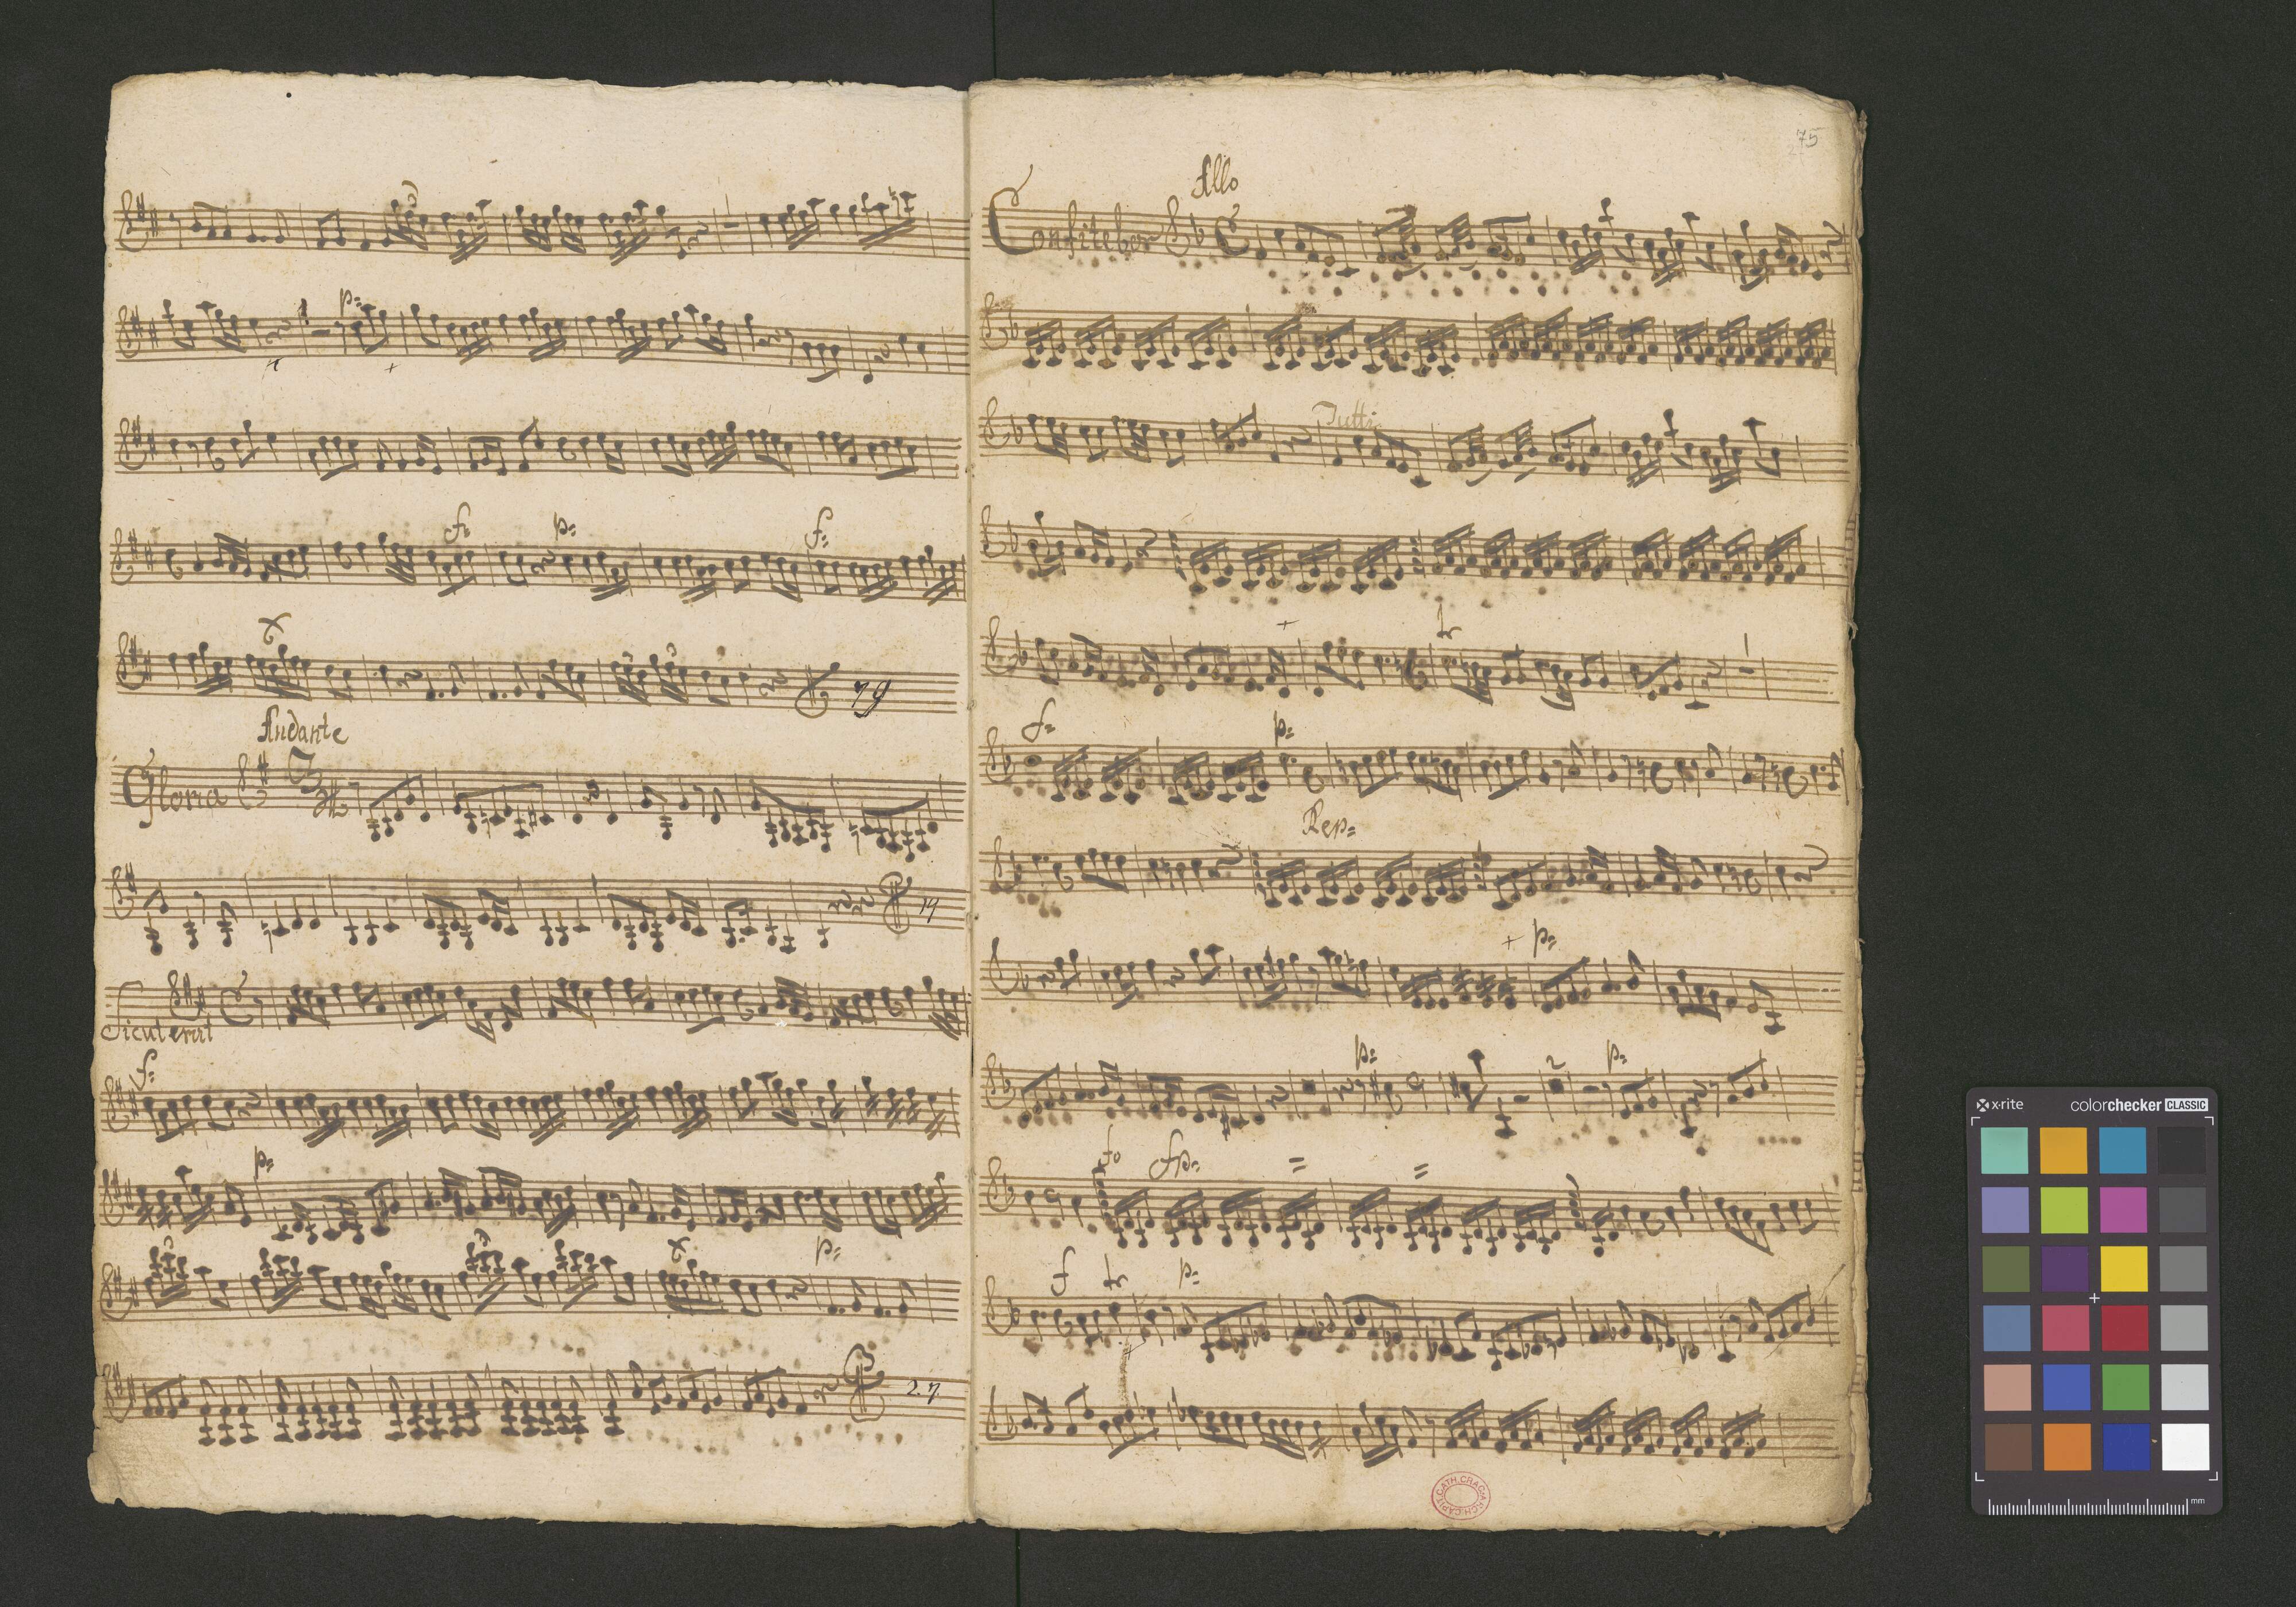 p:
f:
p:
f:
79
Andante
Gloria
14
Sicut erat
f:
p:
p:
27
75
Allo
Confitebor
Tutti
tr
f:
p:
Rep:
p:
p:
2
p:
fo
fp:
f
tr
p:
ARCH. CAPIT. CATH. CRAC.
x-rite
colorchecker CLASSIC
mm